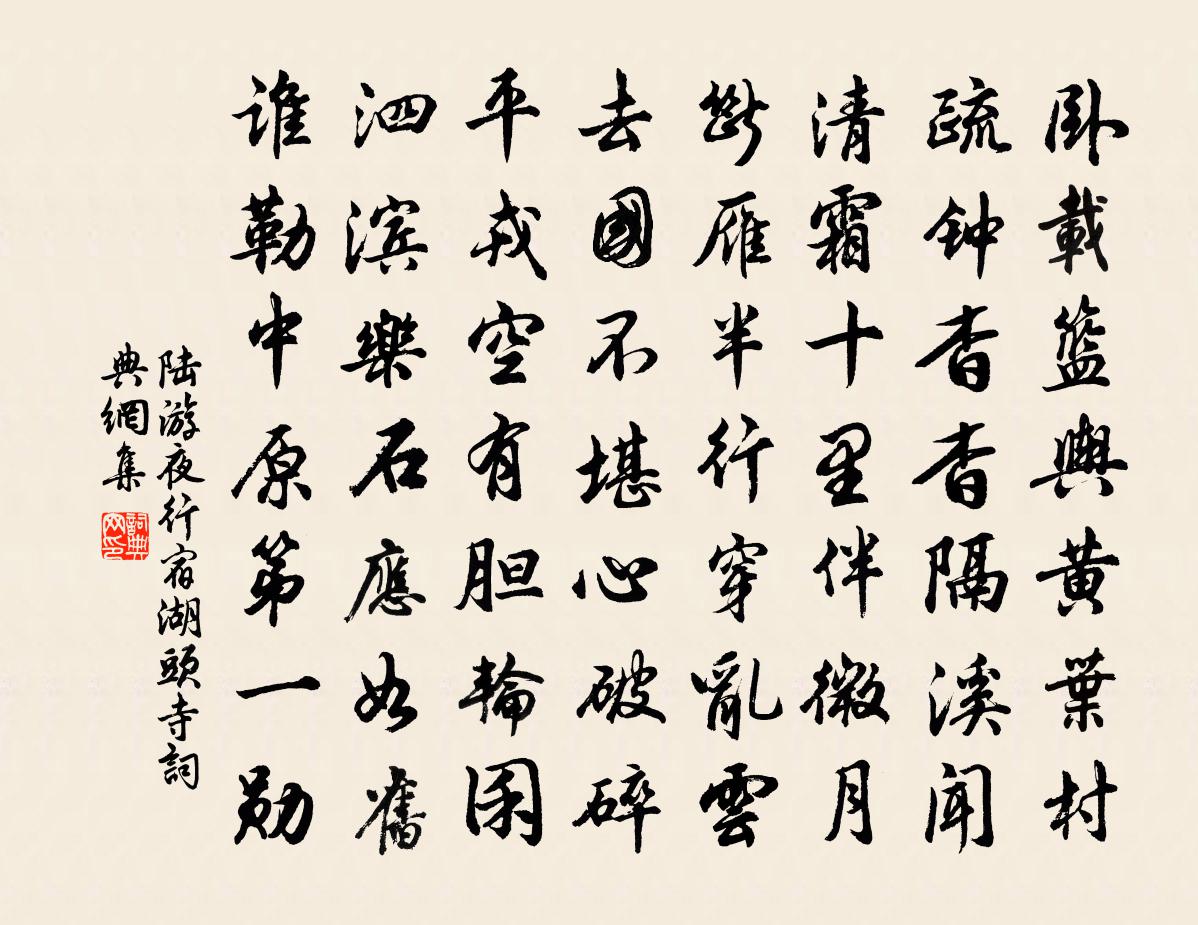 卧載籃輿黄葉村
疏钟杳杳隔溪闻
清霜十里伴微月
断雁半行穿亂雲
去國不堪心破碎
平戎空有胆輪囷
泗滨樂石應如舊
谁勒中原第一勋
陆游夜行宿湖頭寺詞
典網集
詞典
网印